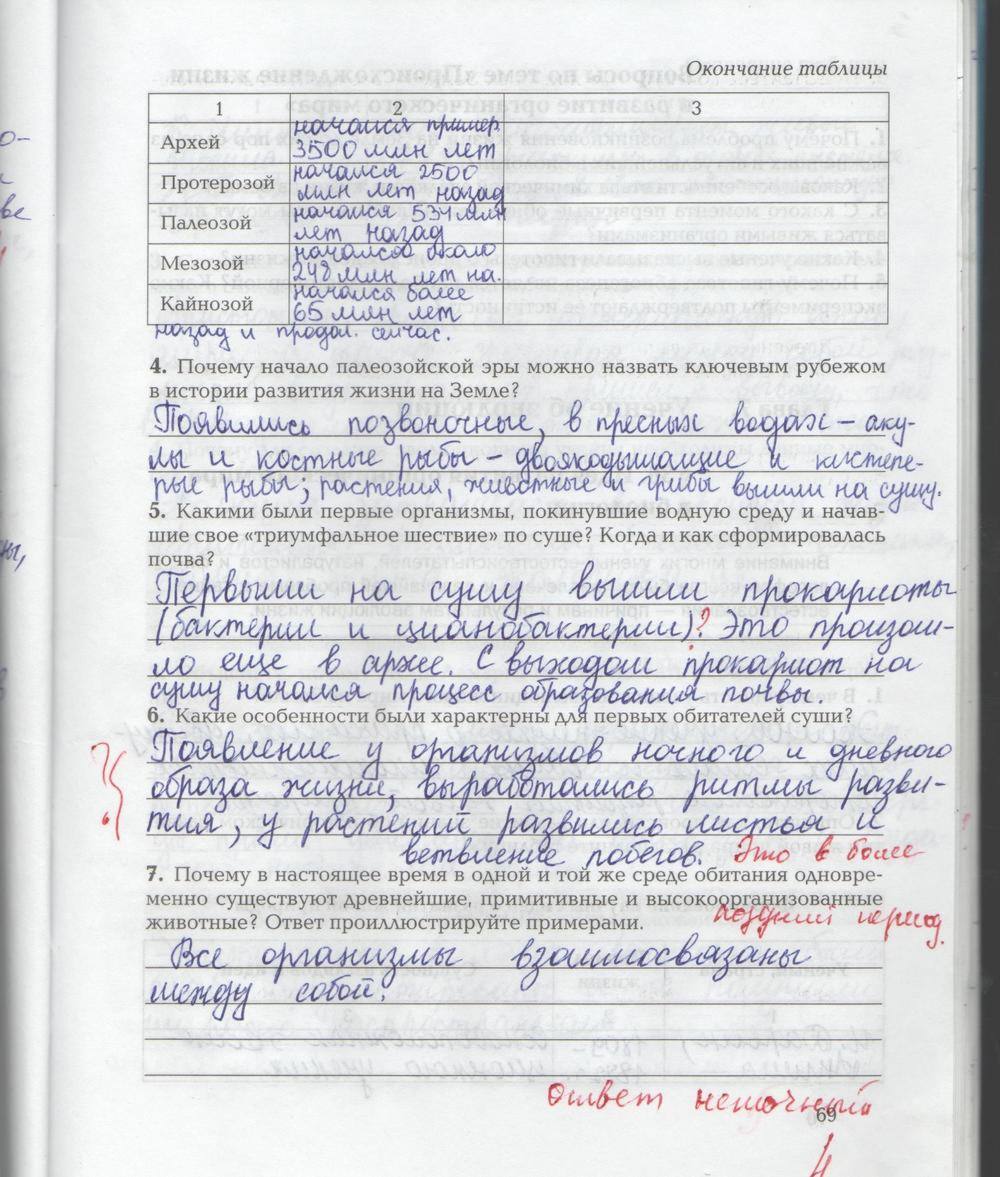 Окончание таблицы
1 2 3
Архей начался пример.
3500 млн лет
Протерозой начался 2500
млн лет назад
Палеозой начался 534 млн
лет назад
Мезозой начался около
248 млн лет на.
Кайнозой начался более
65 млн лет
назад и продол. сейчас.
4. Почему начало палеозойской эры можно назвать ключевым рубежом
в истории развития жизни на Земле?
Появились позвоночные, в пресных водах – аку-
лы и костные рыбы – двоякодышащие и кистепе-
рые рыбы; растения, животные и грибы вышли на сушу.
5. Какими были первые организмы, покинувшие водную среду и начав-
шие свое «триумфальное шествие» по суше? Когда и как сформировалась
почва?
Первыми на сушу вышли прокариоты
(бактерии и цианобактерии)? Это произош-
ло еще в архее. С выходом прокариот на
сушу начался процесс образования почвы.
6. Какие особенности были характерны для первых обитателей суши?
Появление у организмов ночного и дневного
образа жизни, выработались ритмы разви-
тия, у растений развились листья и
ветвление побегов. Это в более
поздний период.
7. Почему в настоящее время в одной и той же среде обитания одновре-
менно существуют древнейшие, примитивные и высокоорганизованные
животные? Ответ проиллюстрируйте примерами.
Все организмы взаимосвязаны
между собой.
Ответ неточный
69
4